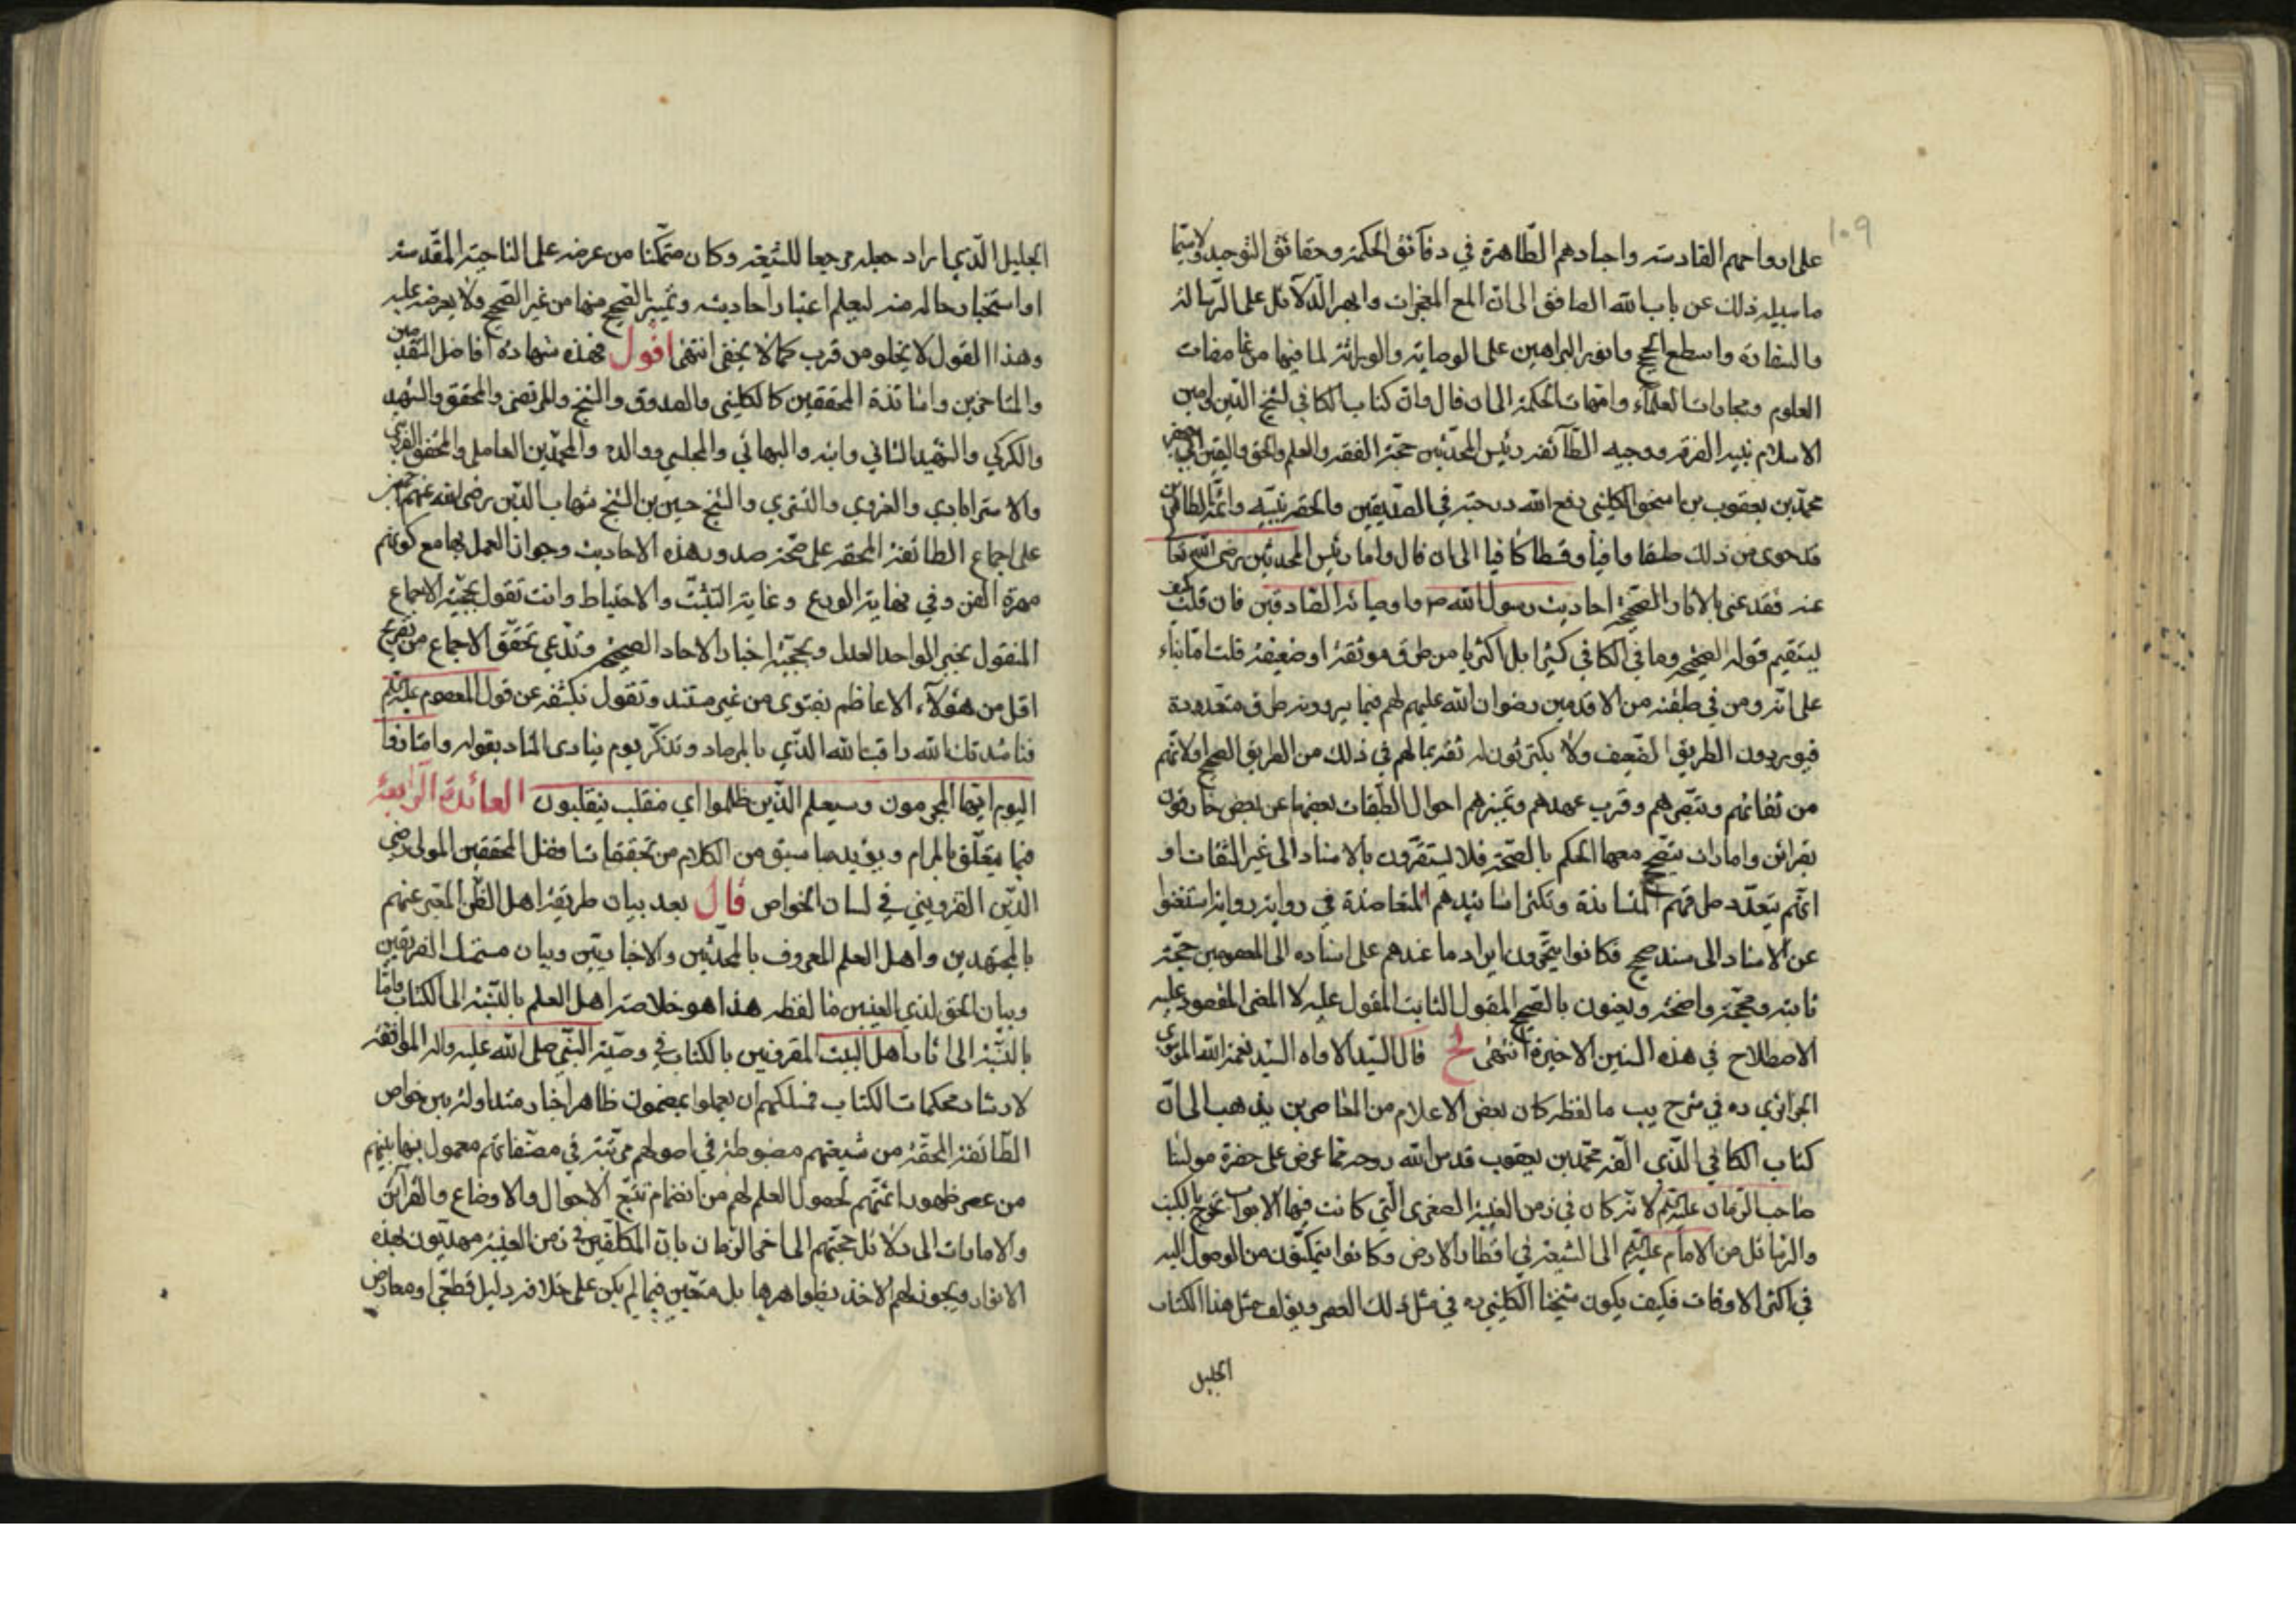 ١٠٩
على ارواحهم القادسة واجسادهم الطّاهرة في دقآئق الحكمة وحقائق التوحيد ولاسيّما
ما سبيله ذلك عن باب الله الصافق الى ان المع المعجزات وابهر الدّلآئل على الرّسالة
والسفارة واسطع الحجج وانور البراهين على الوصاية والوراثة لما فيها من غامضات
العلوم وامّهات الحكمة الى ان قال وان كتاب الكافي لشيخ الدّين وامين
الاسلام نبيه الفرقة ووجيه الطّآئفة رئيس المحدّثين حجّة الفقه والعلم والحق واليقين ابي جعفر
محمّد بن يعقوب بن اسحق الكليني رفع الله درجته في الصدّيقين والحقه بنبيّه وائمّته الطاهرين
قد حوى من ذلك طسقا وافيا وقسطا كافيا الى ان قال واما رئيس المحدثين رضى الله تعا
عنه فقد عنى بالاثار الصّحيحة احاديث رسول الله ص واوصيائه الصّادقين فان قلت كيف
يستقيم قوله الصحيحة وما في الكافي كثيرا بل اكثريا من طرق موثقة او ضعيفة قلت امّا بناء
على انه ومن في طبقته من الاقدمين رضوان الله عليهم لهم فيما يروونه طرق متعدّدة
فيوردون الطريق الضّعيف ولا يكترثون له ثقة بما لهم في ذلك من الطريق الصحيح او لانّهم
من ثقاتهم وتبصّرهم وقرب عهدهم وتميّزهم احوال الطّبقات بعضها عن بعض
بقرائن وامارات يتّضح معها الحكم بالصّحة فلا يستضرّون بالاسناد الى غير الثقات او
انّهم بتعدّد طرقهم المتساندة وتكثر اسانيدهم المتعاضدة في رواية رواية استغنوا
عن الاسناد الى سند صحيح فكانوا ايراد ما عندهم على اسناده الى المعصومين حجّة
ثابتة ومحجّة واضحة ويعنون بالصّحيح المقبول الثابت المعول عليه لا المعنى المقصود عليه
الاصطلاح في هذه السنين الاخيرة انتهى لح قال السّيد الاواه السّيد نعمة الله الموسوي
الجزائري ره في شرح يب ما لفظه كان بعض الاعلام من المعاصرين يذهب الى انّ
كتاب الكافي الّذي الّفه محمّد بن يعقوب قدس الله روحه ممّا عرض على حضرة مولينا
صاحب الزّمان عليه السّلم لانّه كان في زمن الغيبة الصغرى الّتي كانت فيها الابواب تخرج بالكتب
والرّسائل من الامام عليه السّلم الى الشيعة في اقطار الارض وكانوا يتمكّنون من الوصول اليه
في اكثر الاوقات فكيف يكون شيخنا الكليني ره في مثل ذلك العصر ويؤلف مثل هذا الكتاب
الجليل
الجليل الّذي اراد جعله مرجعا للشّيعة وكان متمّكنا من عرضه على النّاحية المقّدسة
او استخبار حاله منه ليعلم اعتبار احاديثه وتميّز الصّحيح منها من غير الصّحيح ولا يعرضه عليه
وهذا القول لا يخلو من قرب كما لا يخفى انتهى اقول فهذه شهادة افاضل المتقدّمين
والمتاخرين واساتذة المحققين كالكليني والصدوق والشيخ والمرتضى والمحقق والشهيد
والكركي والشّهيد الثاني وابنه والبهائي والمجلسي ووالده والمحمّدين العاملي والمحقق
والاسترابادي والغروي والتستري والشّيخ حسين بن الشّيخ شهاب الدّين رضى الله عنهم
على اجماع الطائفة المحقه على صّحة صدور هذه الاحاديث وجواز العمل بها مع كونهم
مهرة الفن وفي نهاية الورع وغاية التّثبّت والاحتياط وانت تقول بحجّية الاجماع
المنقول بخبر الواحد العدل وبحجيّة اخبار الاحاد الصحيحة وتدّعي تحقّق الاجماع من
اقل من هؤلآء الاعاظم بفتوى من غير مستند وتقول نكشفه عن قول المعصوم عليه السّلم
فناشدتك الله راقب الله الّذي بالمرصاد وتذكّر يوم ينادى المناد بقوله وامتازوا
اليوم ايّها المجرمون وسيعلم الّذين ظلموا اي منقلب ينقلبون العائدة الرّابعة
فيما يتعلّق بالمرام ويؤيد ما سبق من الكلام من تحقيقات افضل المحققين المولى رضي
الدّين القزويني في لسان الخواص قال بعد بيان طريقة اهل الظّن المعبّر عنهم
بالمجتهدين واهل العلم المعروف بالمحدّثين والاخباريّين وبيان متمسّك الفريقين
وبيان الحق لذي العينين ما لفظه هذا هو خلاصة اهل العلم بالنّسبة الى الكتاب وامّا
بالنّسبة الى اثار اهل البيت المقرونين بالكتاب في وصيّة النّبي صلى الله عليه واله الموافقة
لارشاد محكمات الكتاب فمسلكهم ان يعملوا بمضمون ظاهر اخبار متداولة بين خواص
الطّائفة المحقّة من شيعتهم مضبوطة في اصولهم مرتّبة في مصنّفاتهم معمول بها بينهم
من عصر ظهور ائمّتهم لحصول العلم لهم من انضمام تتبّع الاحوال والاوضاع والقرآئن
والامارات الى دلائل حجّتهم الى اخر الزمان بان المكلّفين في زمن الغيبة مهديّون بهذه
الانوار ويجوز لهم الاخذ بظواهرها بل متعيّن فيما لم يكن على خلافه دليل قطعّي او معارض